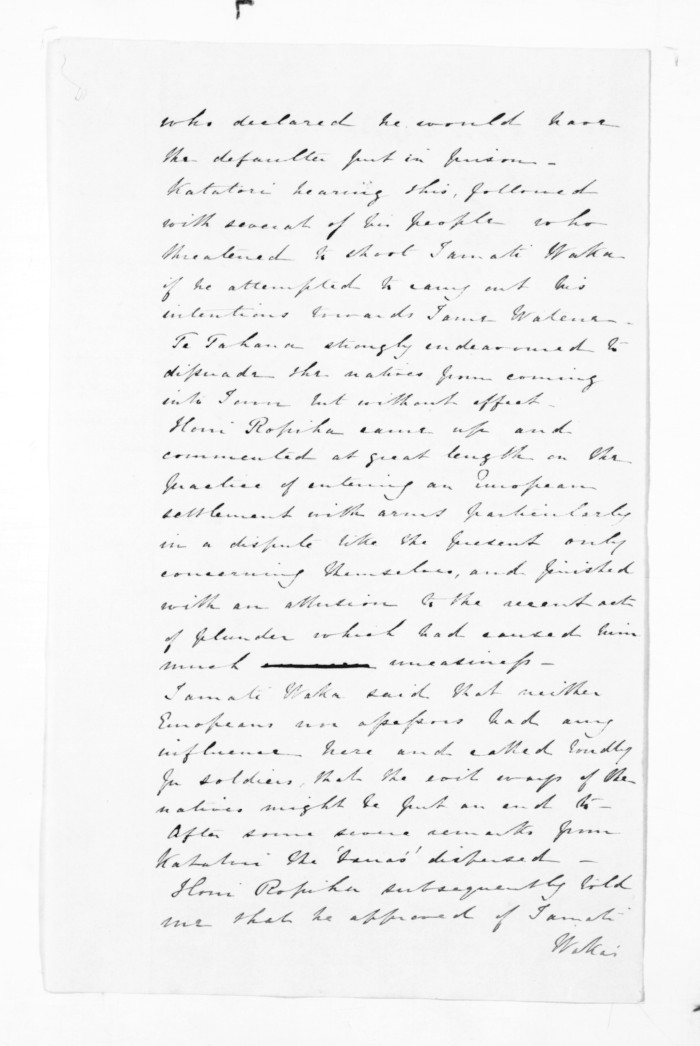 who declared he would have
the defaulter put in prison -
Katatori hearing this, followed
with several of his people who
threatened to shoot Tamati Waka
if he attempted to carry out his
intentions towards Tame Watene -
Te Tahana strongly endeavoured to
dissuade the natives from coming
into Town but without effect -
Honi Ropiha came up and
commented at great length on the
practice of entering an European
settlement with arms particularly
in a dispute like the present only
concerning themselves, and finished
with an allusion to the recent acts
of plunder which had caused him
much uneasiness -
Tamati Waka said that neither
Europeans nor assessors had any
influence here and called loudly
for soldiers, that the evil ways of the
natives might be put an end to -
After some severe remarks from
Katatori the dispersed -
Honi Ropiha subsequently told
me that he approved of Tamati
Waka's